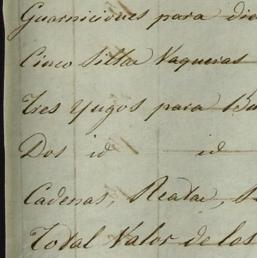 Guarniciones para die
Cinco Sillas Vaqueras
Tres Yugos para Bu
Dos id id
Cadenas, Reatas,
Total Valor de los